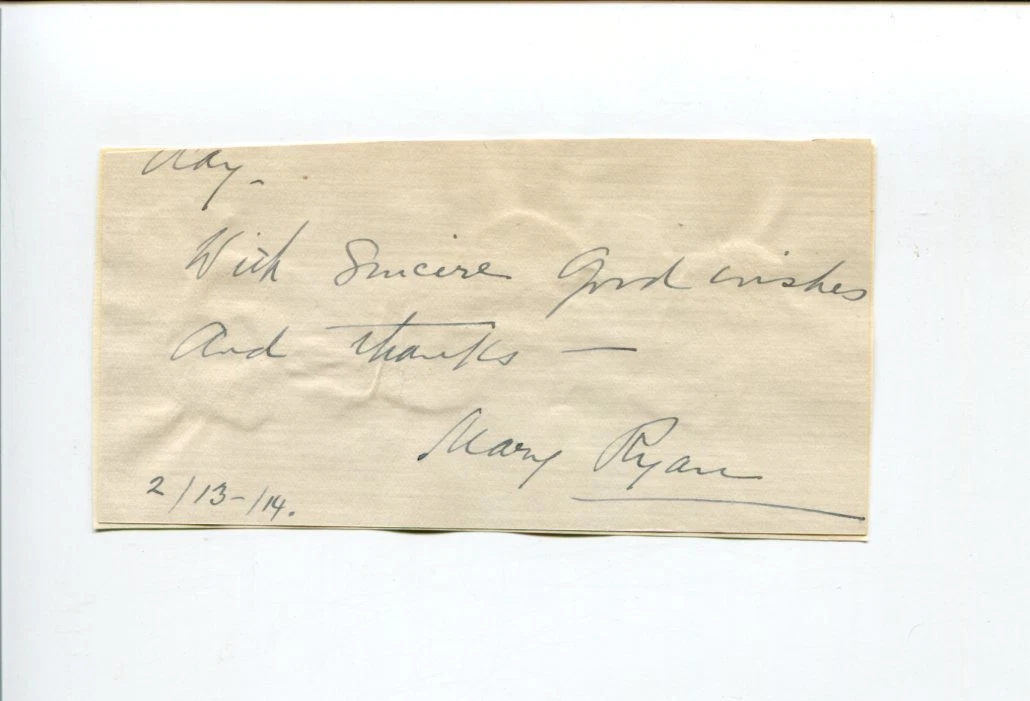 With Sincere Good wishes
And thanks —
Mary Ryan
2/13-/14.